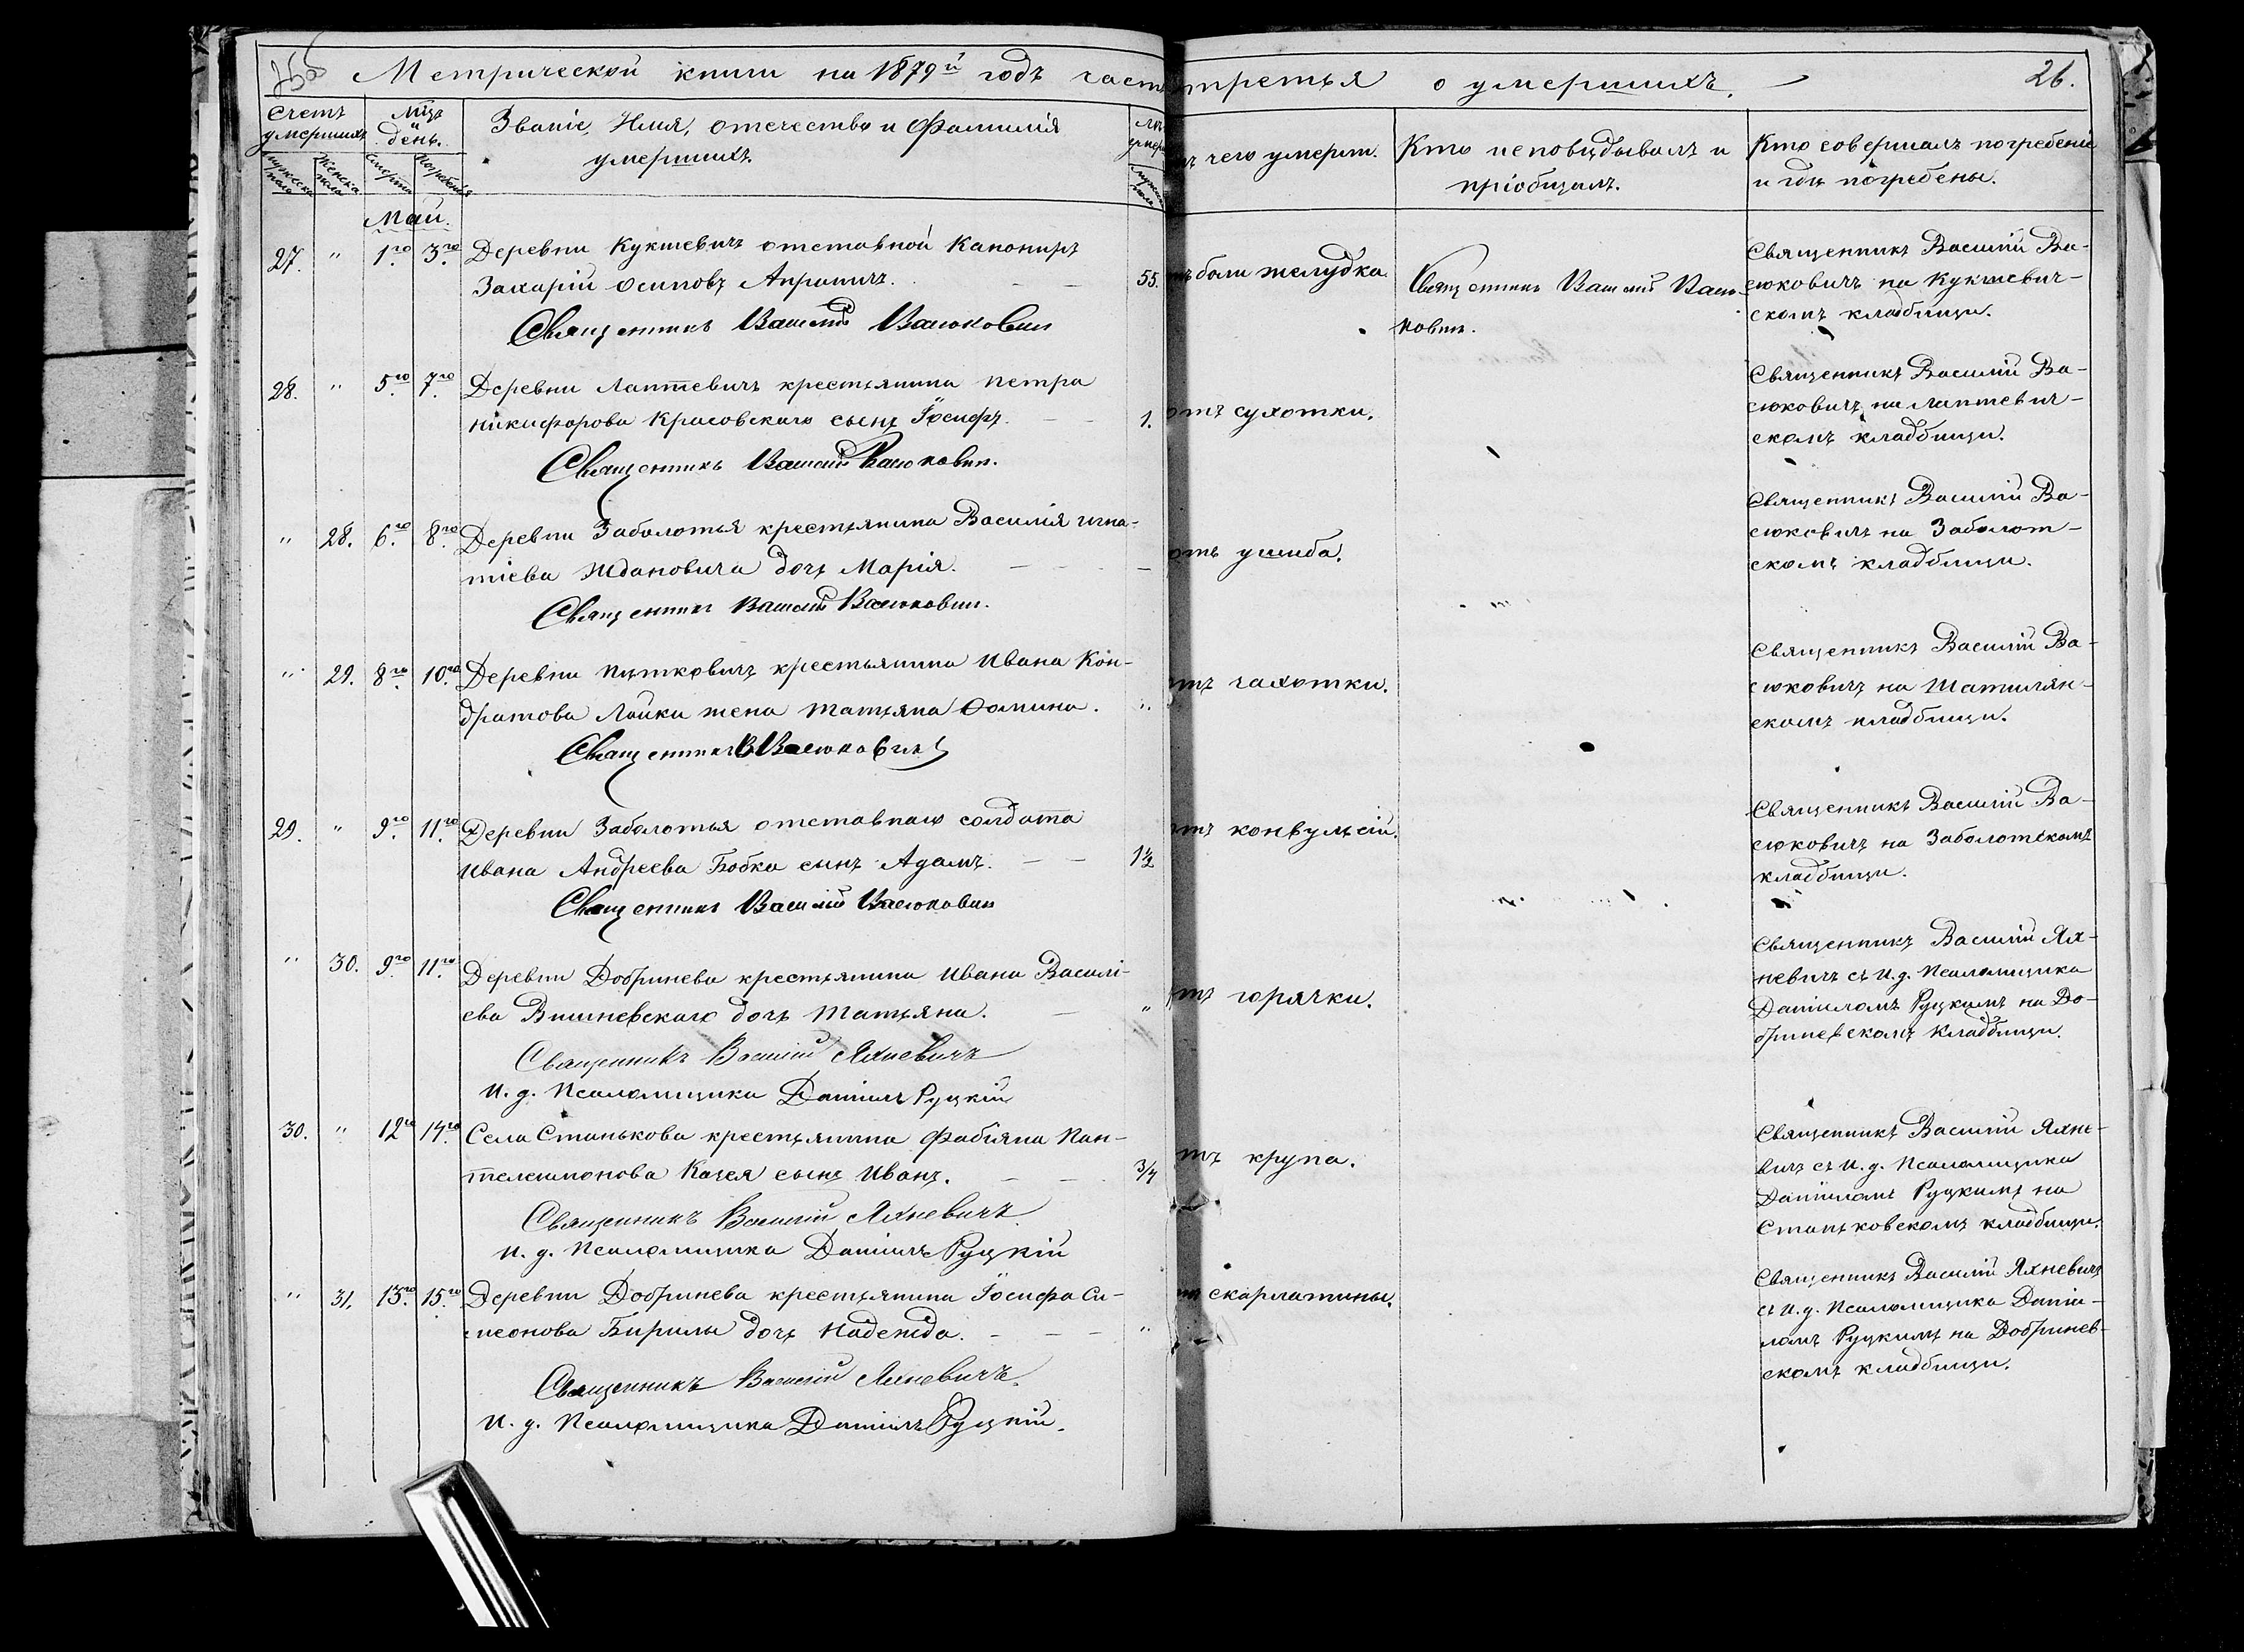 Метрической книги на 1879й годъ часть третья о умершихъ.
26.
Счетъ умершихъ
Мужеска пола
Женска пола
Мцъ и день.
Смерти
Погребенія
Званіе, Имя, отечество и Фамилія
умершихъ.
чего умерт.
Кто исповѣдывалъ и
пріобщалъ.
Кто совершалъ погребеніе
и гдѣ погребены.
Май.
27. " 1го 3го Деревни Кукшевичъ отставной Канониръ
Захарій Осиповъ Апрашичъ. 55.
Священникъ Василій Васюковичъ
боли желудка
Священникъ Василій Васю-
ковичъ.
Священникъ Василій Ва-
сюковичъ на Кукшевич-
скомъ кладбищи.
28. " 5го 7го Деревни Лаптевичъ крестьянина Петра
Никифорова Красовскаго сынъ Іосифъ. 1.
Священникъ Василій Васюковичъ.
отъ сухотки.
Священникъ Василій Ва-
сюковичъ на Лаптевич-
скомъ кладбищи.
" 28. 6го 8го Деревни Заболотья крестьянина Василія Игна-
тіева Ждановича дочь Марія.
Священникъ Василій Васюковичъ.
отъ ушиба.
Священникъ Василій Ва-
сюковичъ на Заболот-
скомъ кладбищи.
" 29. 8го 10го Деревни Пятковичъ крестьянина Ивана Кон-
дратова Лайки жена Татьяна Фомина. "
Священникъ В Васюковичъ
отъ чахотки.
Священникъ Василій Ва-
сюковичъ на Шатилян-
скомъ кладбищи.
29. " 9го 11го Деревни Заболотья отставнаго солдата
Ивана Андреева Бобка сынъ Адамъ. 1½
Священникъ Василій Васюковичъ
отъ конвульсій.
Священникъ Василій Ва-
сюковичъ на Заболотскомъ
кладбищи.
" 30. 9го 11го Деревни Добринева крестьянина Ивана Василі-
ева Вишневскаго дочь Татьяна. "
Священникъ Василій Яхневичъ
И. д. Псаломщика Даніилъ Руцкій
отъ горячки.
Священникъ Василій Ях-
невичъ съ И. д. Псаломщика
Даніиломъ Руцкимъ на До-
бриневскомъ кладбищи.
30. " 12го 14го Села Станькова крестьянина Фабіяна Пан-
телеимонова Казея сынъ Иванъ. 3/4
Священникъ Василій Яхневичъ
И. д. Псаломщика Даніилъ Руцкій
отъ крупа.
Священникъ Василій Яхне-
вичъ съ И. д. Псаломщика
Даніиломъ Руцкимъ на
Станьковскомъ кладбищи.
" 31. 13го 15го Деревни Добринева крестьянина Іосифа Си-
меонова Бирилы дочь Надежда. "
Священникъ Василій Яхневичъ.
И. д. Псаломщика Даніилъ Руцкій.
скарлатины.
Священникъ Василій Яхневичъ
съ И. д. Псаломщика Даніи-
ломъ Руцкимъ на Добринев-
скомъ кладбищи.